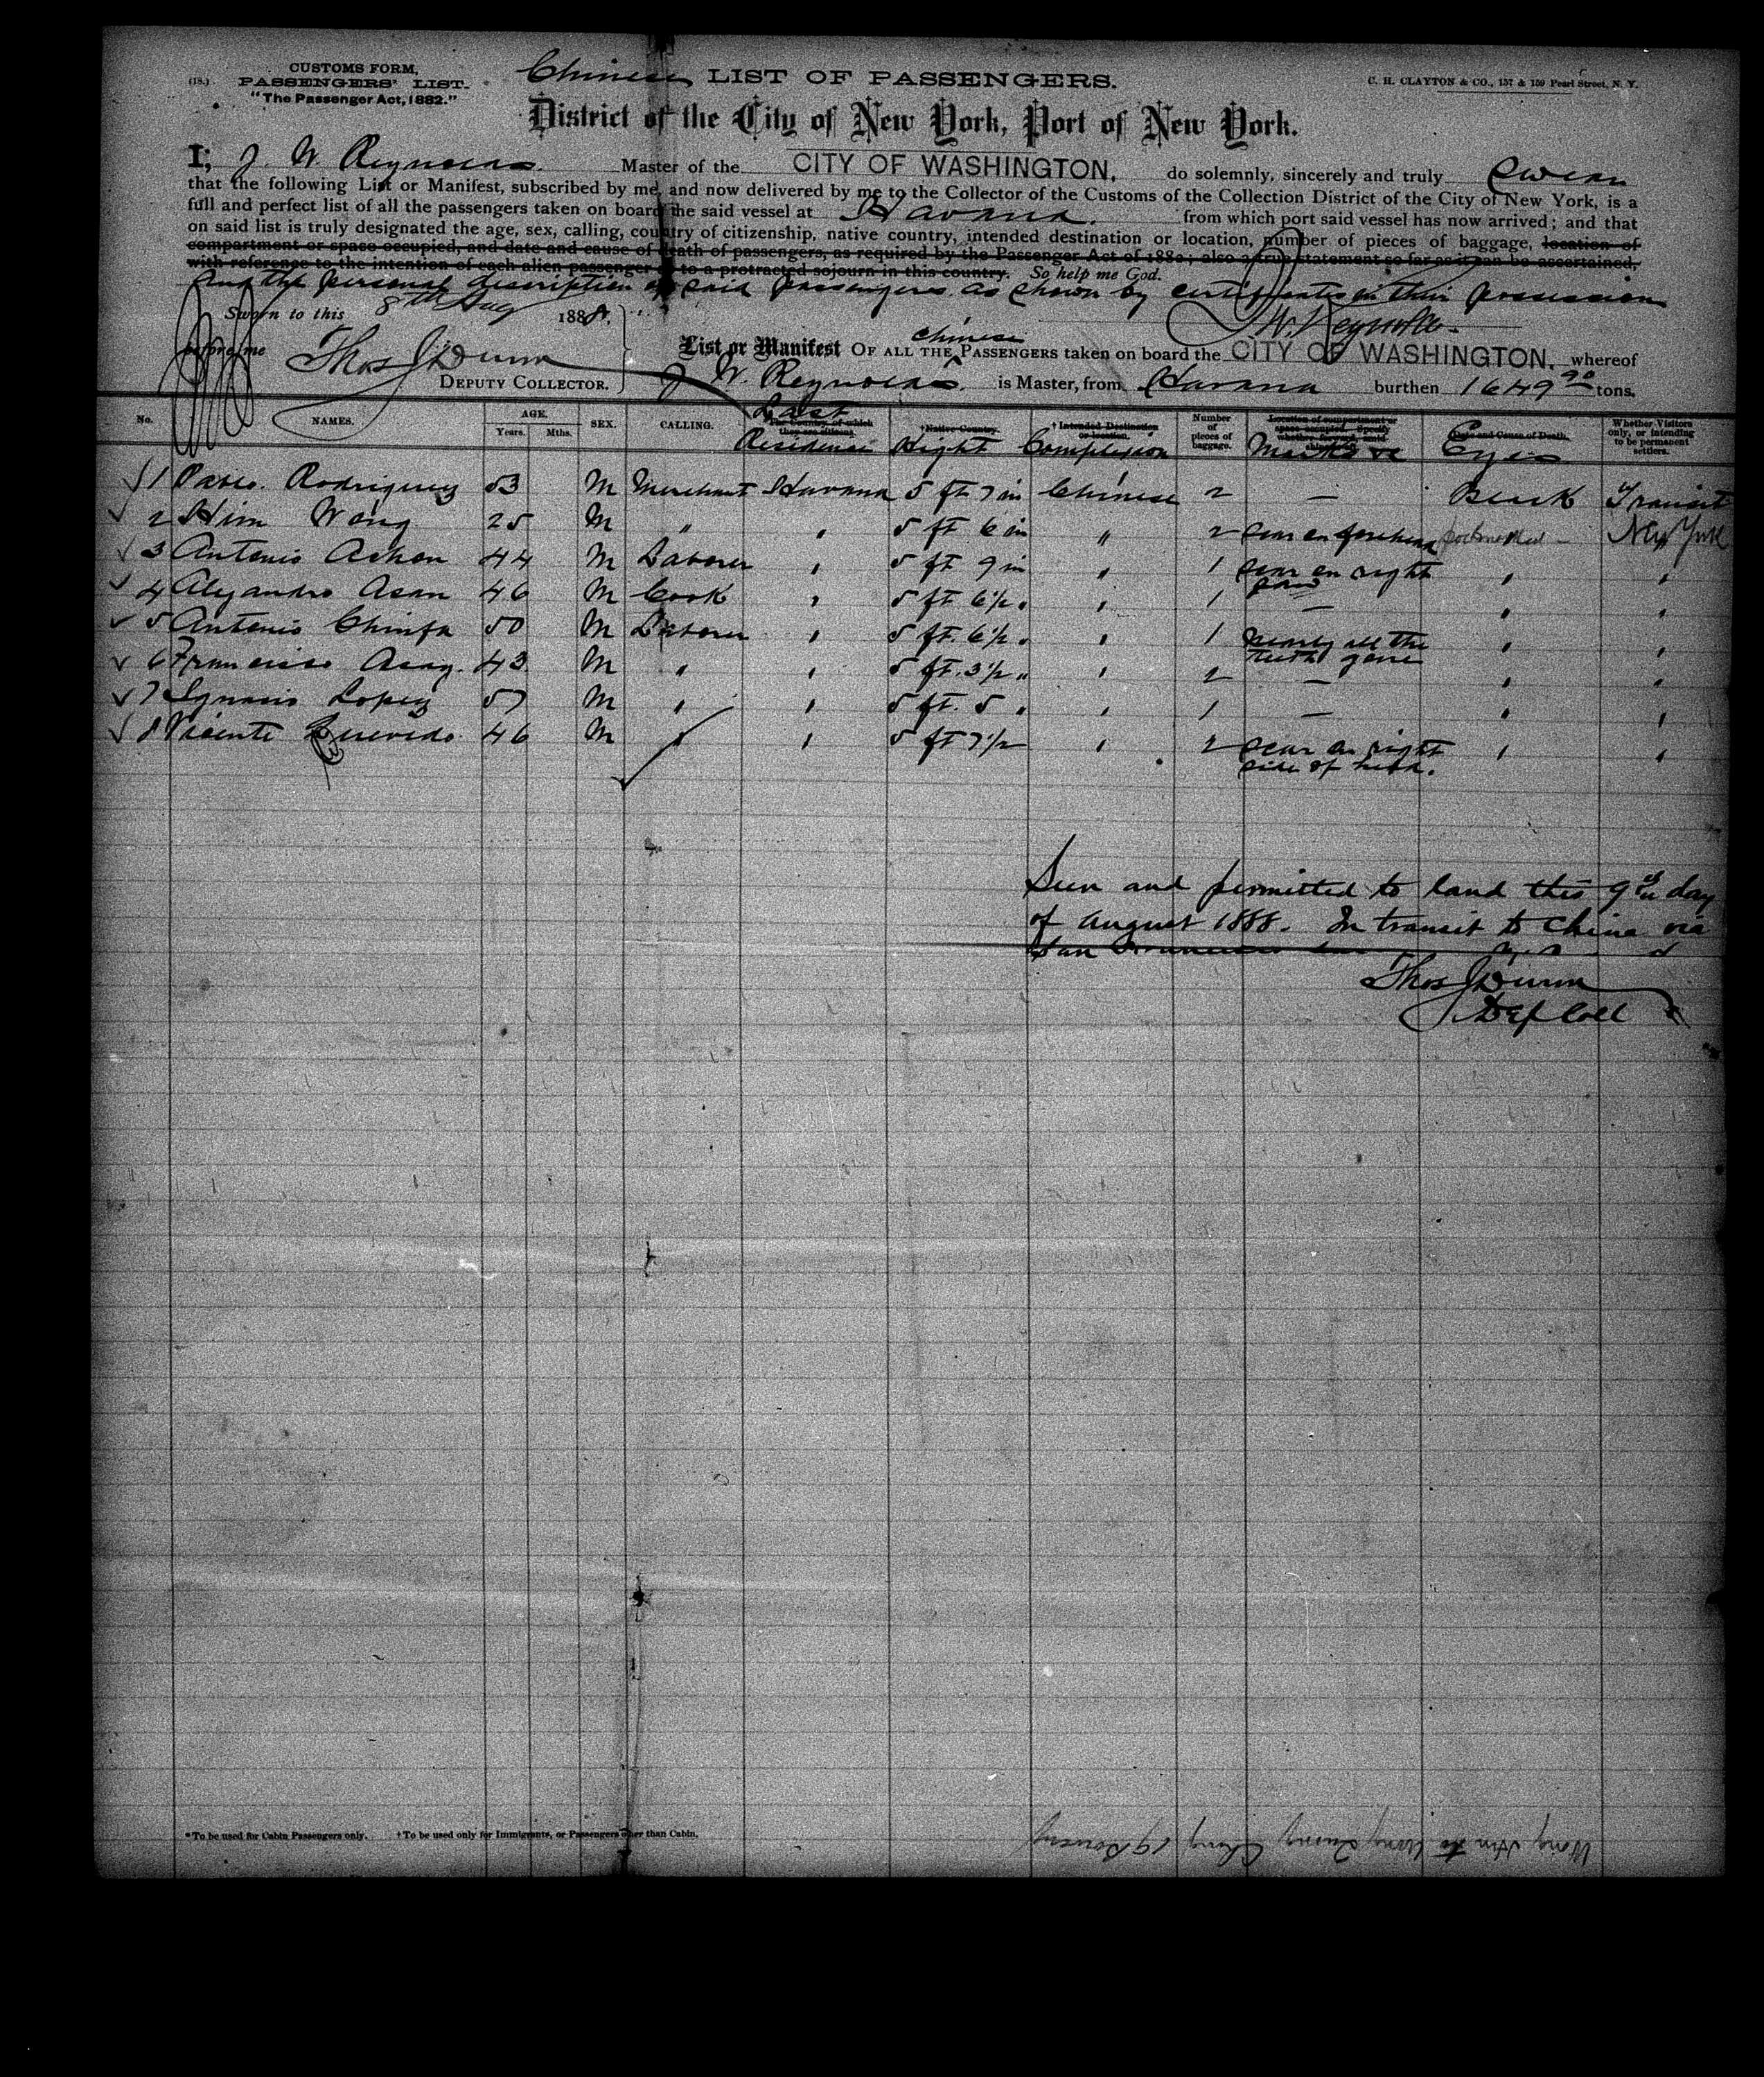 (18.) CUSTOMS FORM,
PASSENGERS' LIST.
"The Passenger Act, 1882."
Chinese LIST OF PASSENGERS.
C. H. CLAYTON & CO., 157 & 159 Pearl Street, N. Y.
District of the City of New York, Port of New York.
I, J. W. Reynolds. Master of the CITY OF WASHINGTON, do solemnly, sincerely and truly swear
that the following List or Manifest, subscribed by me, and now delivered by me to the Collector of the Customs of the Collection District of the City of New York, is a
full and perfect list of all the passengers taken on board the said vessel at Havana. from which port said vessel has now arrived; and that
on said list is truly designated the age, sex, calling, country of citizenship, native country, intended destination or location, number of pieces of baggage, location of
compartment or space occupied, and date and cause of death of passengers, as required by the Passenger Act of 1882; also a true statement so far as it can be ascertained,
with reference to the intention of each alien passenger as to a protracted sojourn in this country. So help me God.
and the personal description of said passengers as shown by certificates in their possession
Sworn to this 8th Aug 1888.
J W. Reynolds
before me Thos J Dunn
DEPUTY COLLECTOR.
List or Manifest OF ALL THE Chinese PASSENGERS taken on board the CITY OF WASHINGTON. whereof
J. W. Reynolds. is Master, from Havana burthen 1649 90 tons.
No. NAMES. AGE. Years. Mths. SEX. CALLING. Last Residence Hight Complexion Number of pieces of baggage. Marks &c Eyes Whether Visitors only, or intending to be permanent settlers.
The country of which they are citizens. †Native Country. †Intended Destination or location. Date and Cause of Death.
1 Rodriguez 53 M Merchant Havana 5 ft 7 in Chinese 2 — Black Transit
2 Him Wong 25 M " " 5 ft 6 in " 2 scar on forehead pockmarked " New York
3 Antonio Achon 44 M Laborer " 5 ft 9 in " 1 scar on right " "
4 Alejandro Asan 46 M Cook " 5 ft 6½ " " 1 — " "
5 Antonio Chinfa 50 M Laborer " 5 ft. 6½ " " 1 nearly all the teeth gone " "
6 Francisco Asay. 43 M " " 5 ft. 3½ " " 2 — " "
7 Ignacio Lopez 57 M " " 5 ft. 5 " " 1 — " "
8 Vicente Quevedo 46 M " " 5 ft 7½ " 2 scar on right side of head. " "
Seen and permitted to land this 9th day
of August 1888. In transit to China via
San Francisco
Thos J Dunn
Dep Coll
*To be used for Cabin Passengers only. †To be used only for Immigrants, or Passengers other than Cabin.
Wong Him to Wong Chung 19 Bowery